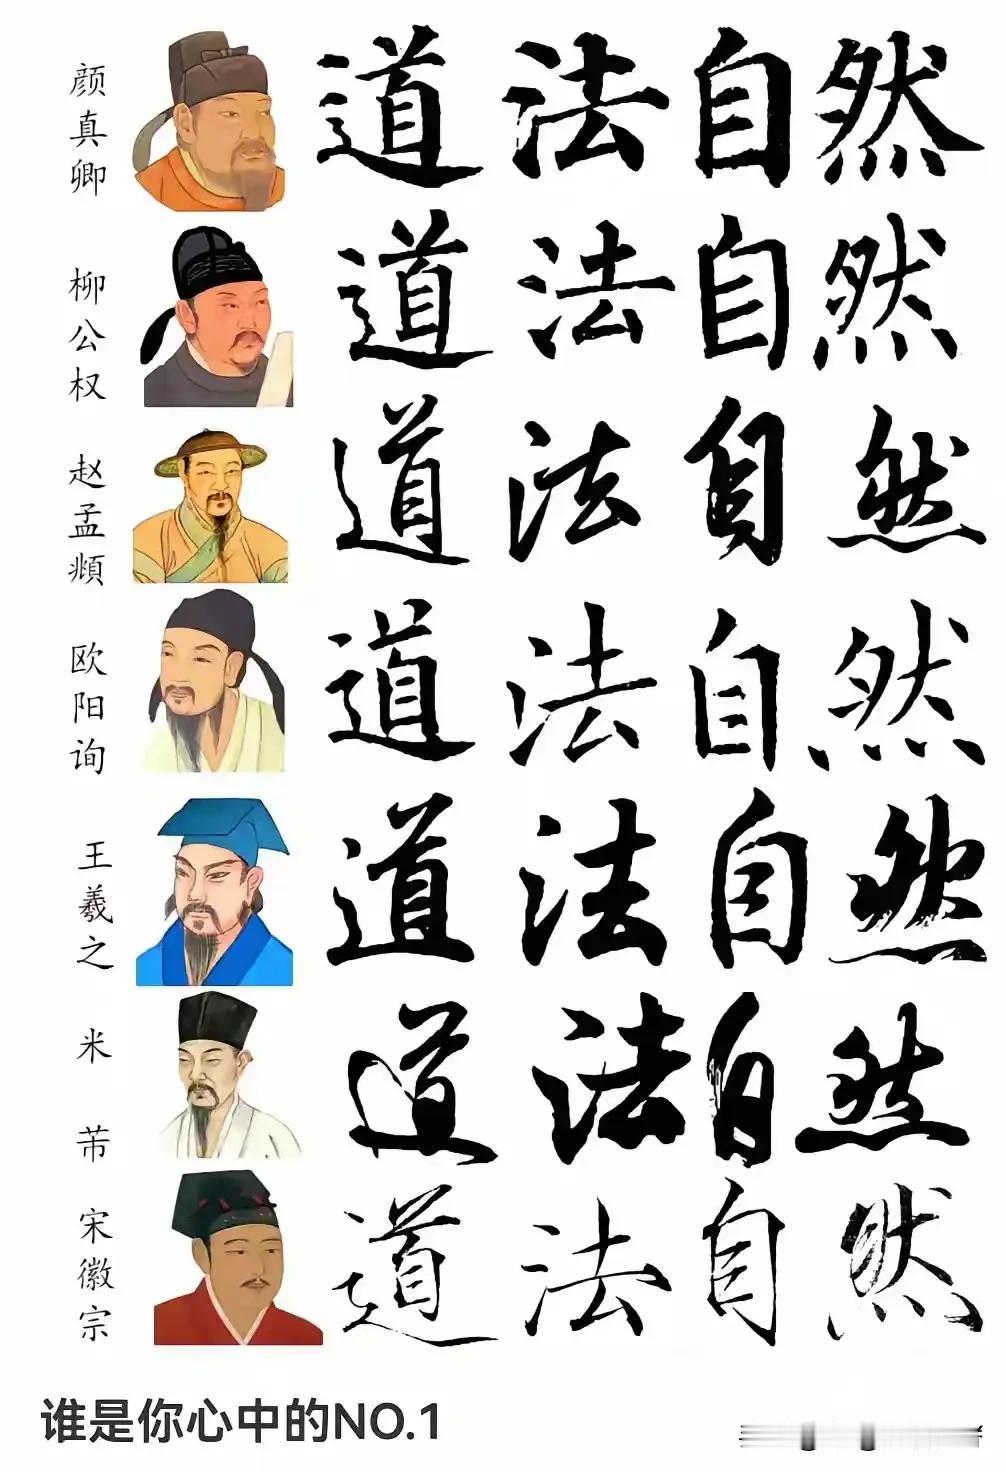 颜真卿 道法自然
柳公权 道法自然
赵孟頫 道法自然
欧阳询 道法自然
王羲之 道法自然
米芾 道法自然
宋徽宗 道法自然
谁是你心中的NO.1